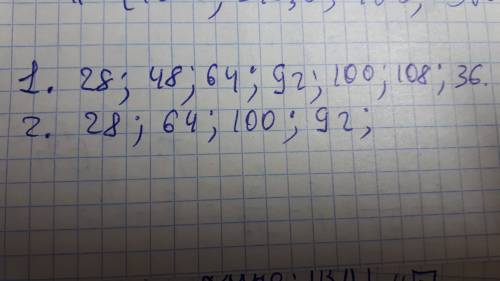 1. 28; 48; 64; 92; 100; 108; 36.
2. 28; 64; 100; 92;